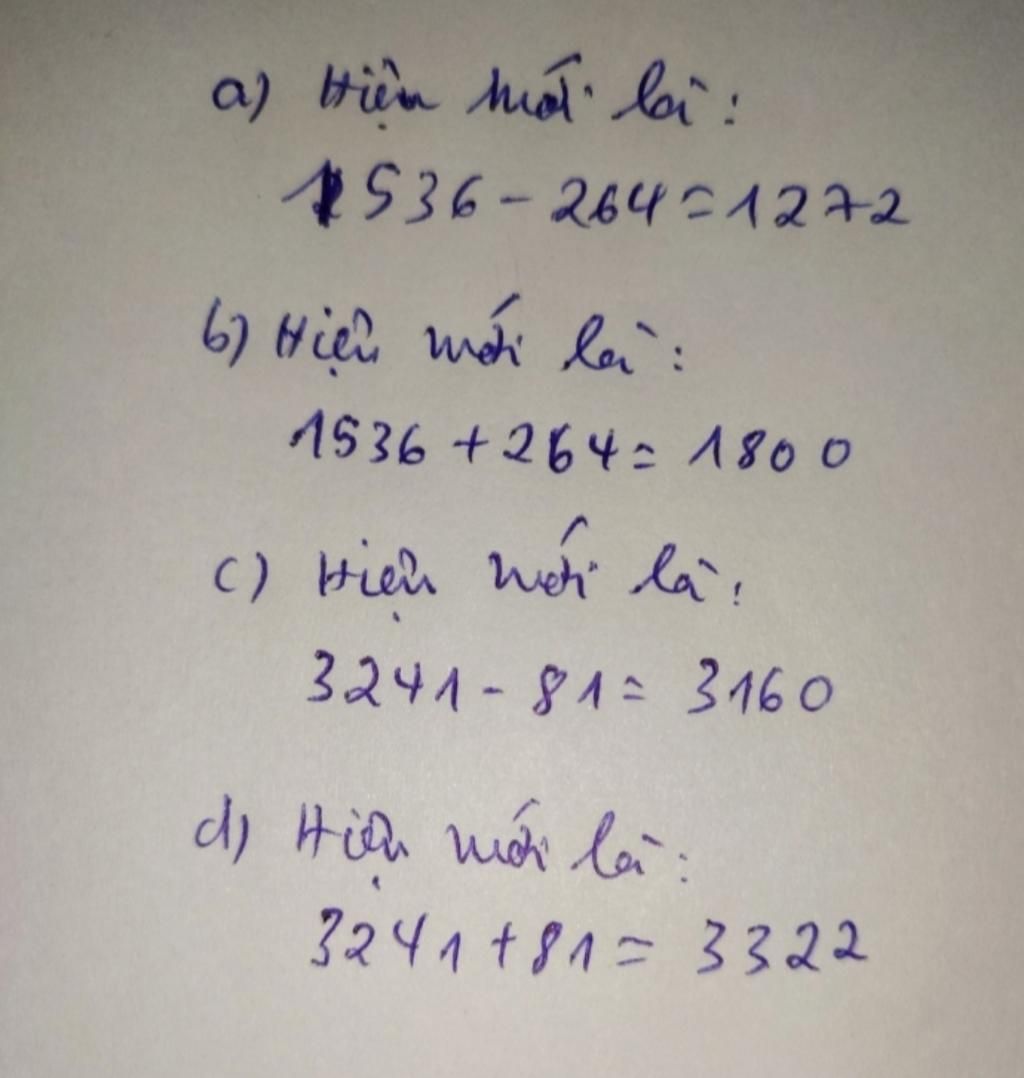 a) Hiệu mới là:
1536 - 264 = 1272
b) Hiệu mới là:
1536 + 264 = 1800
c) Hiệu mới là:
3241 - 81 = 3160
d) Hiệu mới là:
3241 + 81 = 3322